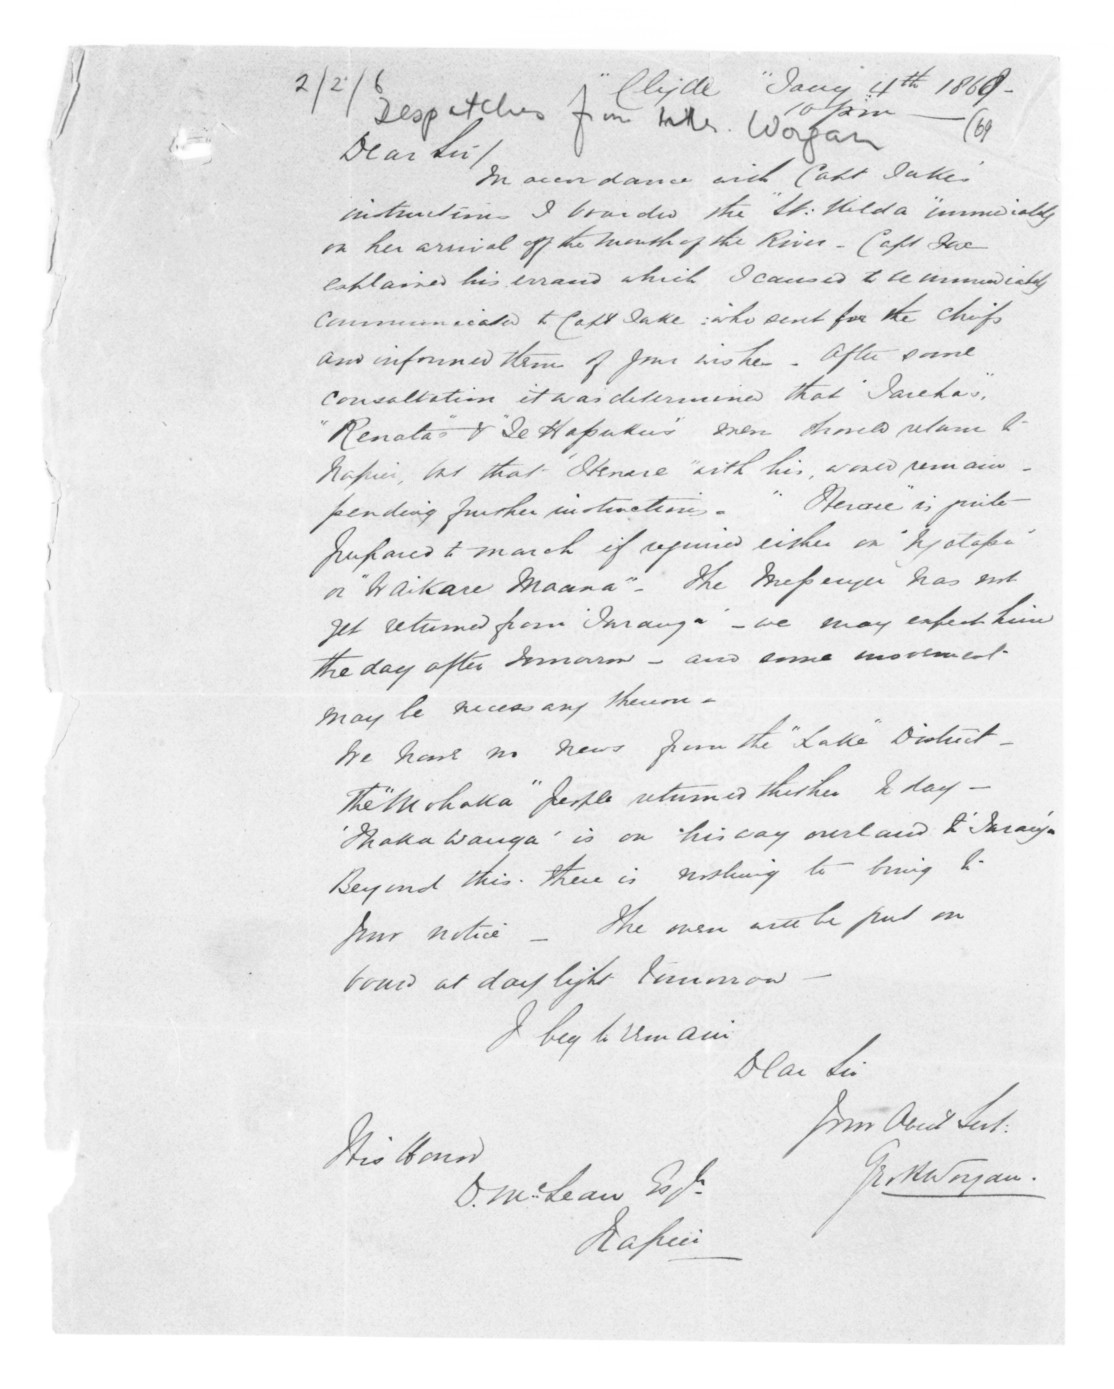 2/2/6
"Clyde" Jany 4th 1869 -
10 pm —
Despatches from Mr. Worgan (69
Dear Sir/
In accordance with Capt Tuke's
instructions I boarded the "St: Kilda" immediately
on her arrival off the mouth of the River - Capt Fox
explained his errand which I caused to be immediately
communicated to Capt Tuke : who sent for the chiefs
and informed them of your wishes - After some
consultation it was determined that "Tareha's",
"Renata's" & "Te Hapuku's men should return to
Napier, but that "Henare" with his, would remain -
pending further instructions. "Henare" is quite
prepared to march if required either on "Ngatapa"
or "Waikare Moana" - The Messenger has not
yet returned from 'Turanga' - we may expect him
the day after tomorrow - and some movement
may be necessary thereon -
We have no news from the "Lake" District -
The "Mohaka" people returned thither to day -
'Ihaka Wanga' is on his way overland to 'Turanga
Beyond this. there is nothing to bring to
your notice - The men will be put on
board at day light tomorrow -
I beg to remain
Dear Sir
Your Obedt Servt:
Geo H Worgan.
His Honor
D. McLean Esqr.
Napier